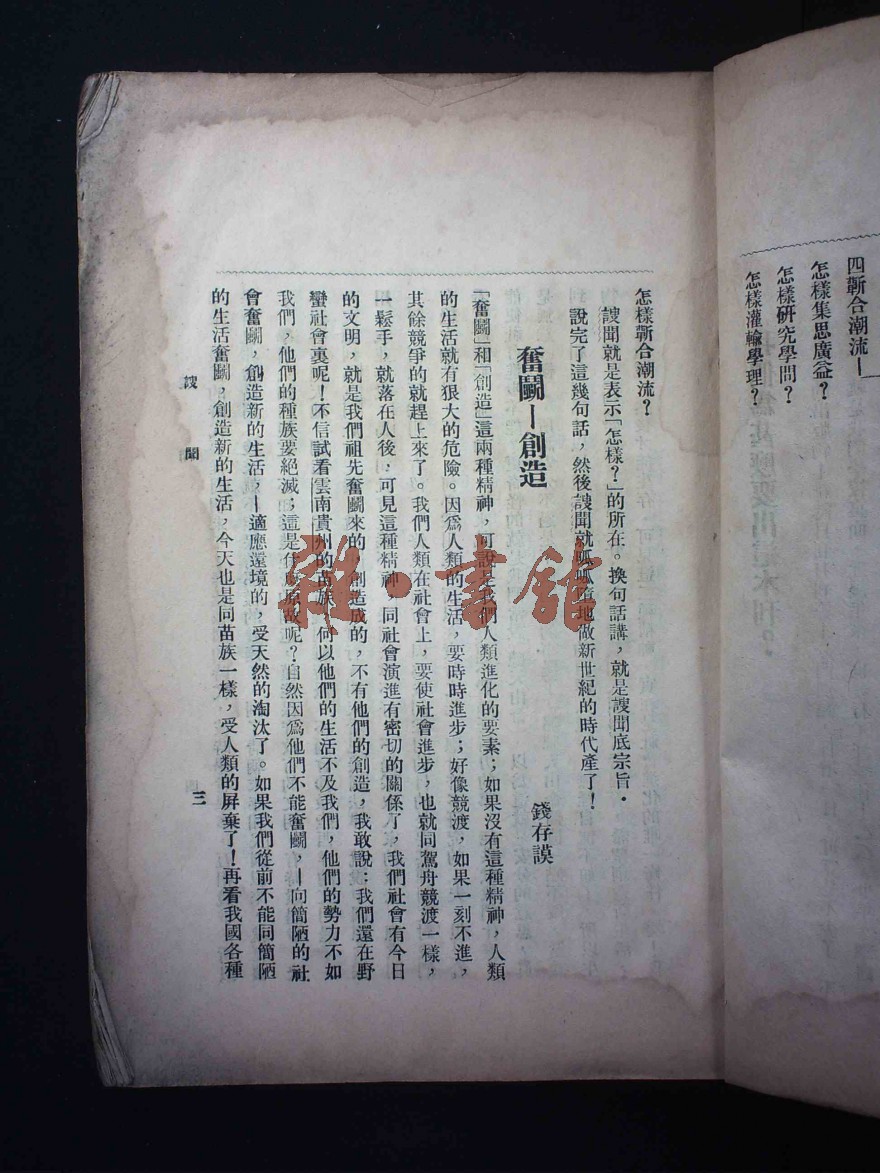 四斬合潮流—
怎樣集思廣益？
怎樣研究學問？
怎樣灌輸學理？
怎樣斬合潮流？
謏聞就是表示「怎樣？」的所在。換句話講，就是謏聞底宗旨．
說完了這幾句話，然後謏聞就呱呱墮地做新世紀的時代產了！
奮鬭—創造
錢存謨
「奮鬭」和「創造」這兩種精神，可說是我們人類進化的要素；如果沒有這種精神，人類
的生活就有狠大的危險。因爲人類的生活，要時時進步；好像競渡，如果一刻不進，
其餘競爭的就趕上來了。我們人類在社會上，要使社會進步，也就同駕舟競渡一樣，
一鬆手，就落在人後，可見這種精神，同社會演進有密切的關係了，我們社會有今日
的文明，就是我們祖先奮鬭來的，創造成的，不有他們的創造，我敢說：我們還在野
蠻社會裏呢！不信試看雲南貴州的苗族，何以他們的生活不及我們，他們的勢力不如
我們，他們的種族要絕滅；這是什麼原故呢？自然因爲他們不能奮鬭，—向簡陋的社
會奮鬭，創造新的生活，—適應還境的，受天然的淘汰了。如果我們從前不能同簡陋
的生活奮鬭，創造新的生活，今天也是同苗族一樣，受人類的屏棄了！再看我國各種
謏聞
三
雜·書館